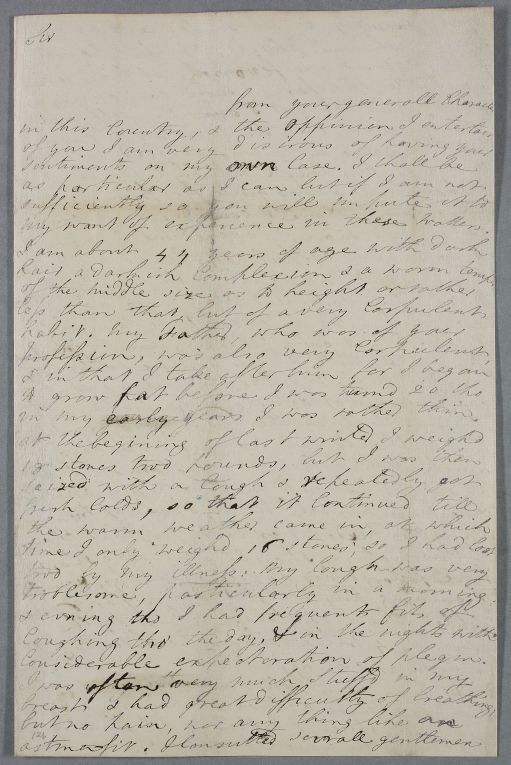 Sir
from your generall Character
in this Country, & the oppinion I entertain
of you I am very disirous of having your
sentiments on my own Case. I shall be
as particular as I can but if I am not
sufficiently so you will impute it to
my want of experience in these matters.
I am about 44 years of age with dark
hair a darkish Complexion & a warm temper
of the middle size as to height or rather
less than that, but of a very Corpulent
habit. my Father, who was of your
profession, was also very Corpulent,
& in that I take after him, for I began
to grow fat before I was turnd 20 tho
in my early years I was rather thin,
at the begining of last winter I weighd
18 stones two pounds, but I was then
seized with a Cough & repeatedly got
fresh Colds, so that it Continued till
the warm weather came in, at which
time I only weighd 16 stones, so I had lost
two by my illness. My Cough was very
troblesome, particularly in a morning
& evning tho I had frequent fits of
Coughing thro the day, & in the nights with
Considerable exhectoration of plegm.
I was often very much stuffd in my
breast & had great difficulty of breathing,
but no pain, nor any thing like an
astma fit. I Consulted severall gentlemen
126